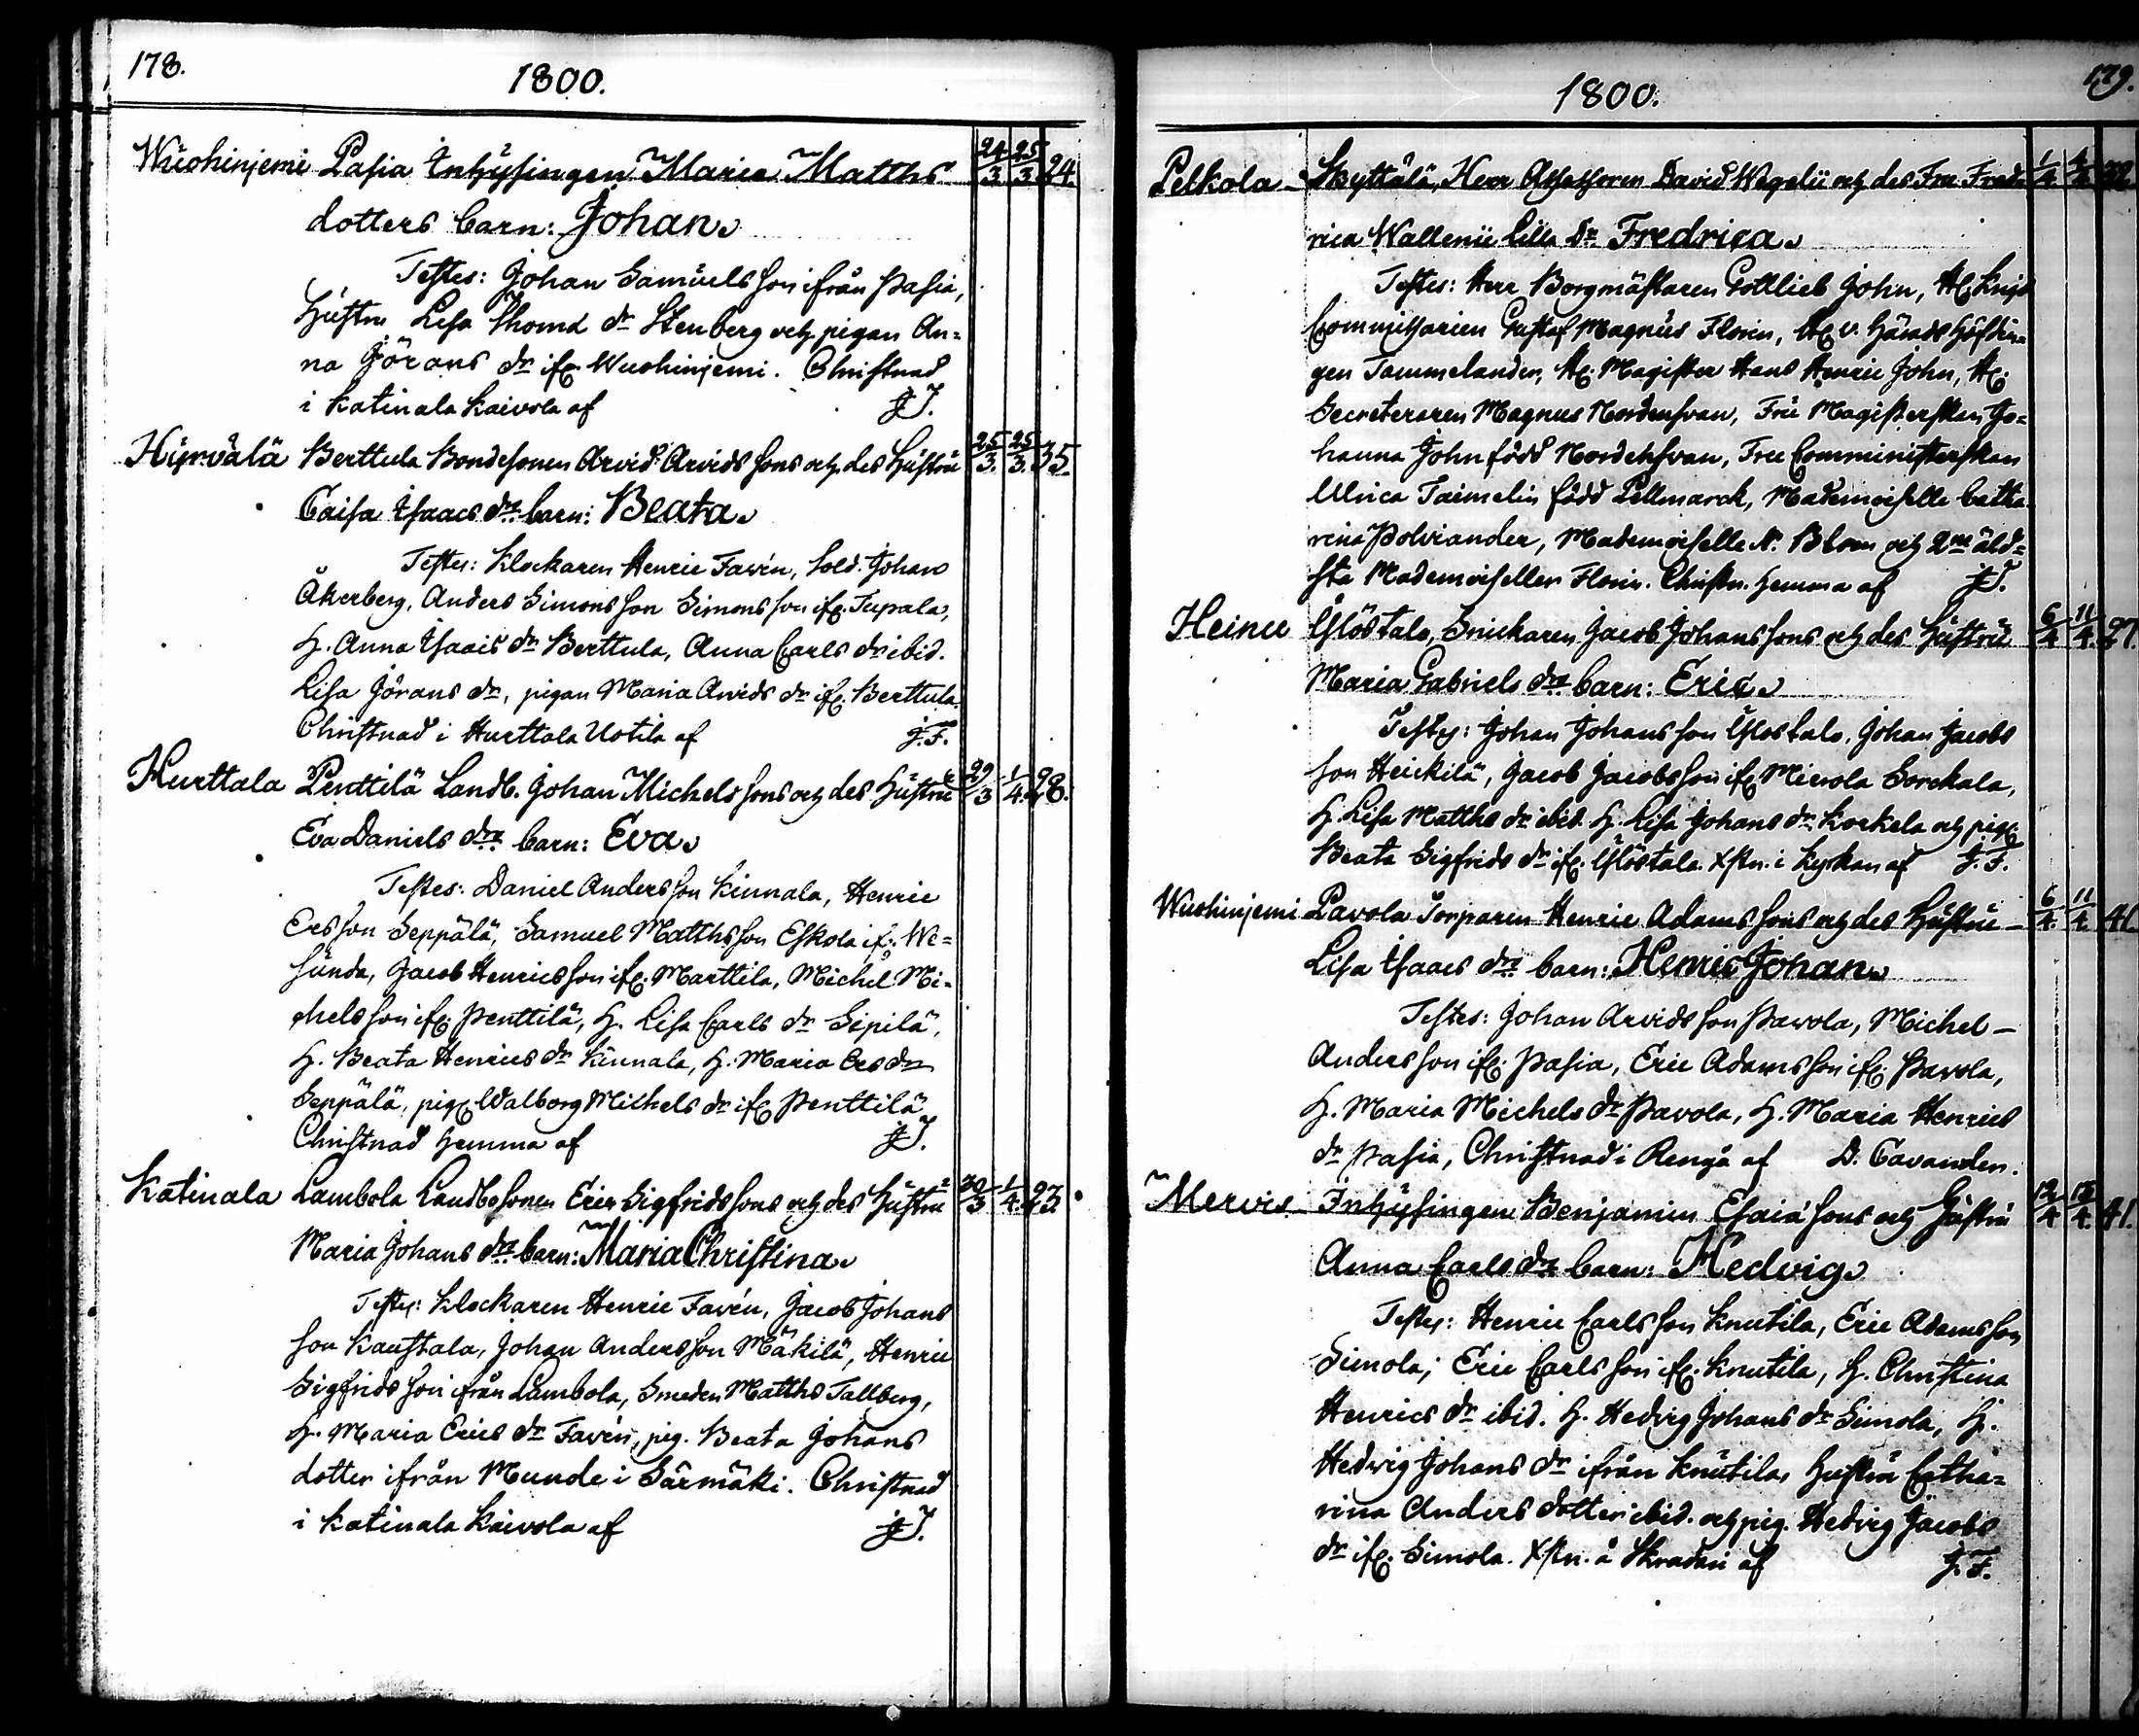 178.
1800.
Wuohinjemi Pasia Inhysingen Maria Matths 24/3 25/3 24.
dotters barn: Johan.
Testes: Johan Samuelsson ifrån Pasia,
Hustru Lisa Thoms dr Stenberg och pigan An=
na Görans dr ifr. Wuohinjemi. Christnad
i Katinala Kaivola af
Hyrvälä Berttula Bondesonen Arvid Arvidssons och des Hustru 25/3 25/3 35.
Caisa Isaacs drs barn: Beata.
Testes: Klockaren Henric Favén, Sold. Johan
Åkerberg, Anders Simonsson Simonsson ifr. Tupala,
H. Anna Isaacs dr Berttula, Anna Carls dr ibid.
Lisa Görans dr, pigan Maria Arvids dr ifr. Berttula.
Christnad i Hurttala Uotila af J.F.
Hurttala Penttilä Landb. Johan Michelssons och des Hustru 29/3 1/4 28.
Eva Daniels drs barn: Eva.
Testes: Daniel Andersson Kinnala, Henric
Ersson Seppälä, Samuel Matthsson Eskola if. We=
sunda, Jacob Henricsson ifr. Marttila, Michel Mi=
chelsson ifr. Penttilä, H. Lisa Carls dr Sipilä,
H. Beata Henrics dr Kinnala, H. Maria Ers dr
Seppälä, pig. Walborg Michels dr ifr Penttilä
Christnad hemma af
Katinala Lambola Landbosonen Eric Sigfridssons och des Hustru 30/3 1/4 23.
Maria Johans drs barn: Maria Christina.
Testes: Klockaren Henric Favén, Jacob Johans
son Kaustala, Johan Andersson Mäkilä, Henric
Sigfridsson ifrån Lambola, Smeden Matths Tallberg,
H. Maria Erics dr Favén, pig. Beata Johans
dotter ifrån Munde i Särmäki. Christnad
i Katinala Kaivola af
1800.
179.
Pelkola Skyttälä, Herr Assessoren David Wegelii och des Fru Fred= 1/4
rica Wallenii lilla Dr Fredrica.
Testes: Herr Borgmästaren Gottlieb John, Hr. Krigs
Commissarien Gustaf Magnus Florin, Hr. v. Häradshöfdin=
gen Tammelander, Hr. Magister Hans Henric John, Hr.
Secreteraren Magnus Nordensvan, Fru Magisterskan Jo=
hanna John född Nordensvan, Fru Comministerskan
Ulrica Taimelin född Pellmarck, Mademoiselle Catha
rina Polviander, Mademoiselle N. Blom och 2ne äld=
sta Mademoiseller Florin. Christn. hemma af
Heinu Ylöstalo, Snickaren Jacob Johanssons och des Hustru 6/4 11/4 27.
Maria Gabriels drs barn: Eric.
Testes: Johan Johansson Ylöstalo, Johan Jacobs
son Heickilä, Jacob Jacobsson ifr Mierola Sorckala,
H. Lisa Matths dr ibid. H. Lisa Johans dr. Korkela och pig.
Beata Sigfrids dr ifr. Ylöstalo. Xstn. i Kyrkan af J.F.
Wuohinjemi Pavola Torparen Henric Adamssons och des Hustru 6/4 11/4 41.
Lisa Isaacs drs barn: Henric Johan.
Testes: Johan Arvidsson Pavola, Michel
Andersson ifr. Pasia, Eric Adamsson ifr. Pavola,
H. Maria Michels dr Pavola, H. Maria Henrics
dr Pasia, Christnad i Rengå af D. Cavander.
Mervis Inhysingen Benjamin Esaiæsons och Hustru 12/4 41.
Anna Carls drs barn: Hedvig.
Testes: Henric Carlsson Knutila, Eric Adamsson
Simola, Eric Carlsson ifr. Knutila, H. Christina
Henrics dr ibid. H. Hedvig Johans dr Simola, H.
Hedwig Johans dr ifrån Knutila, Hustru Catha=
rina Anders dotter ibid. och pig. Hedvig Jacobs
dr ifr. Simola. Xstn. å af J.F.